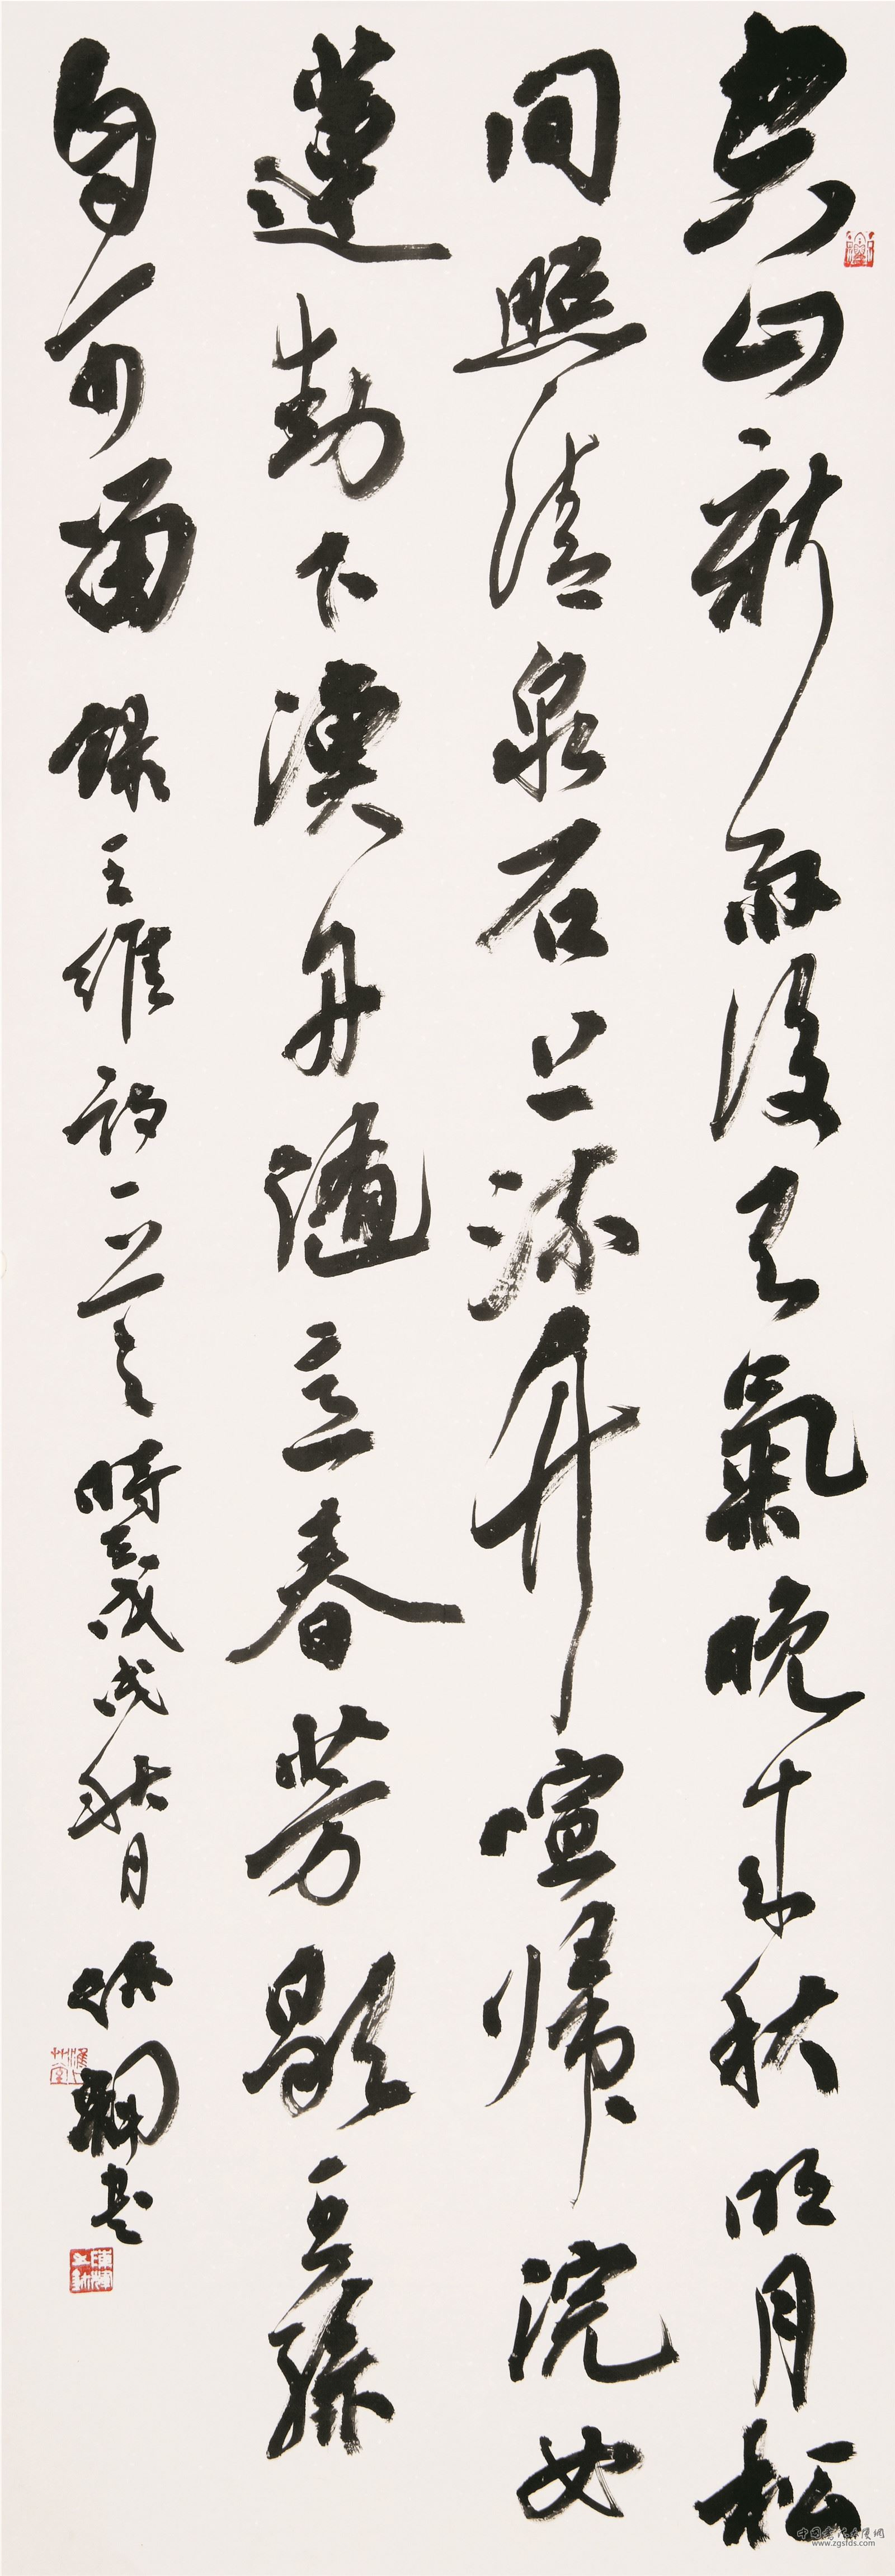 空山新雨後天氣晚来秋明月松
间照清泉石上流竹喧歸浣女
蓮動下漁舟隨意春芳歇王孫
自可留 錄王維詩一首 時在戊戌秋月 書
www.zgsfds.com